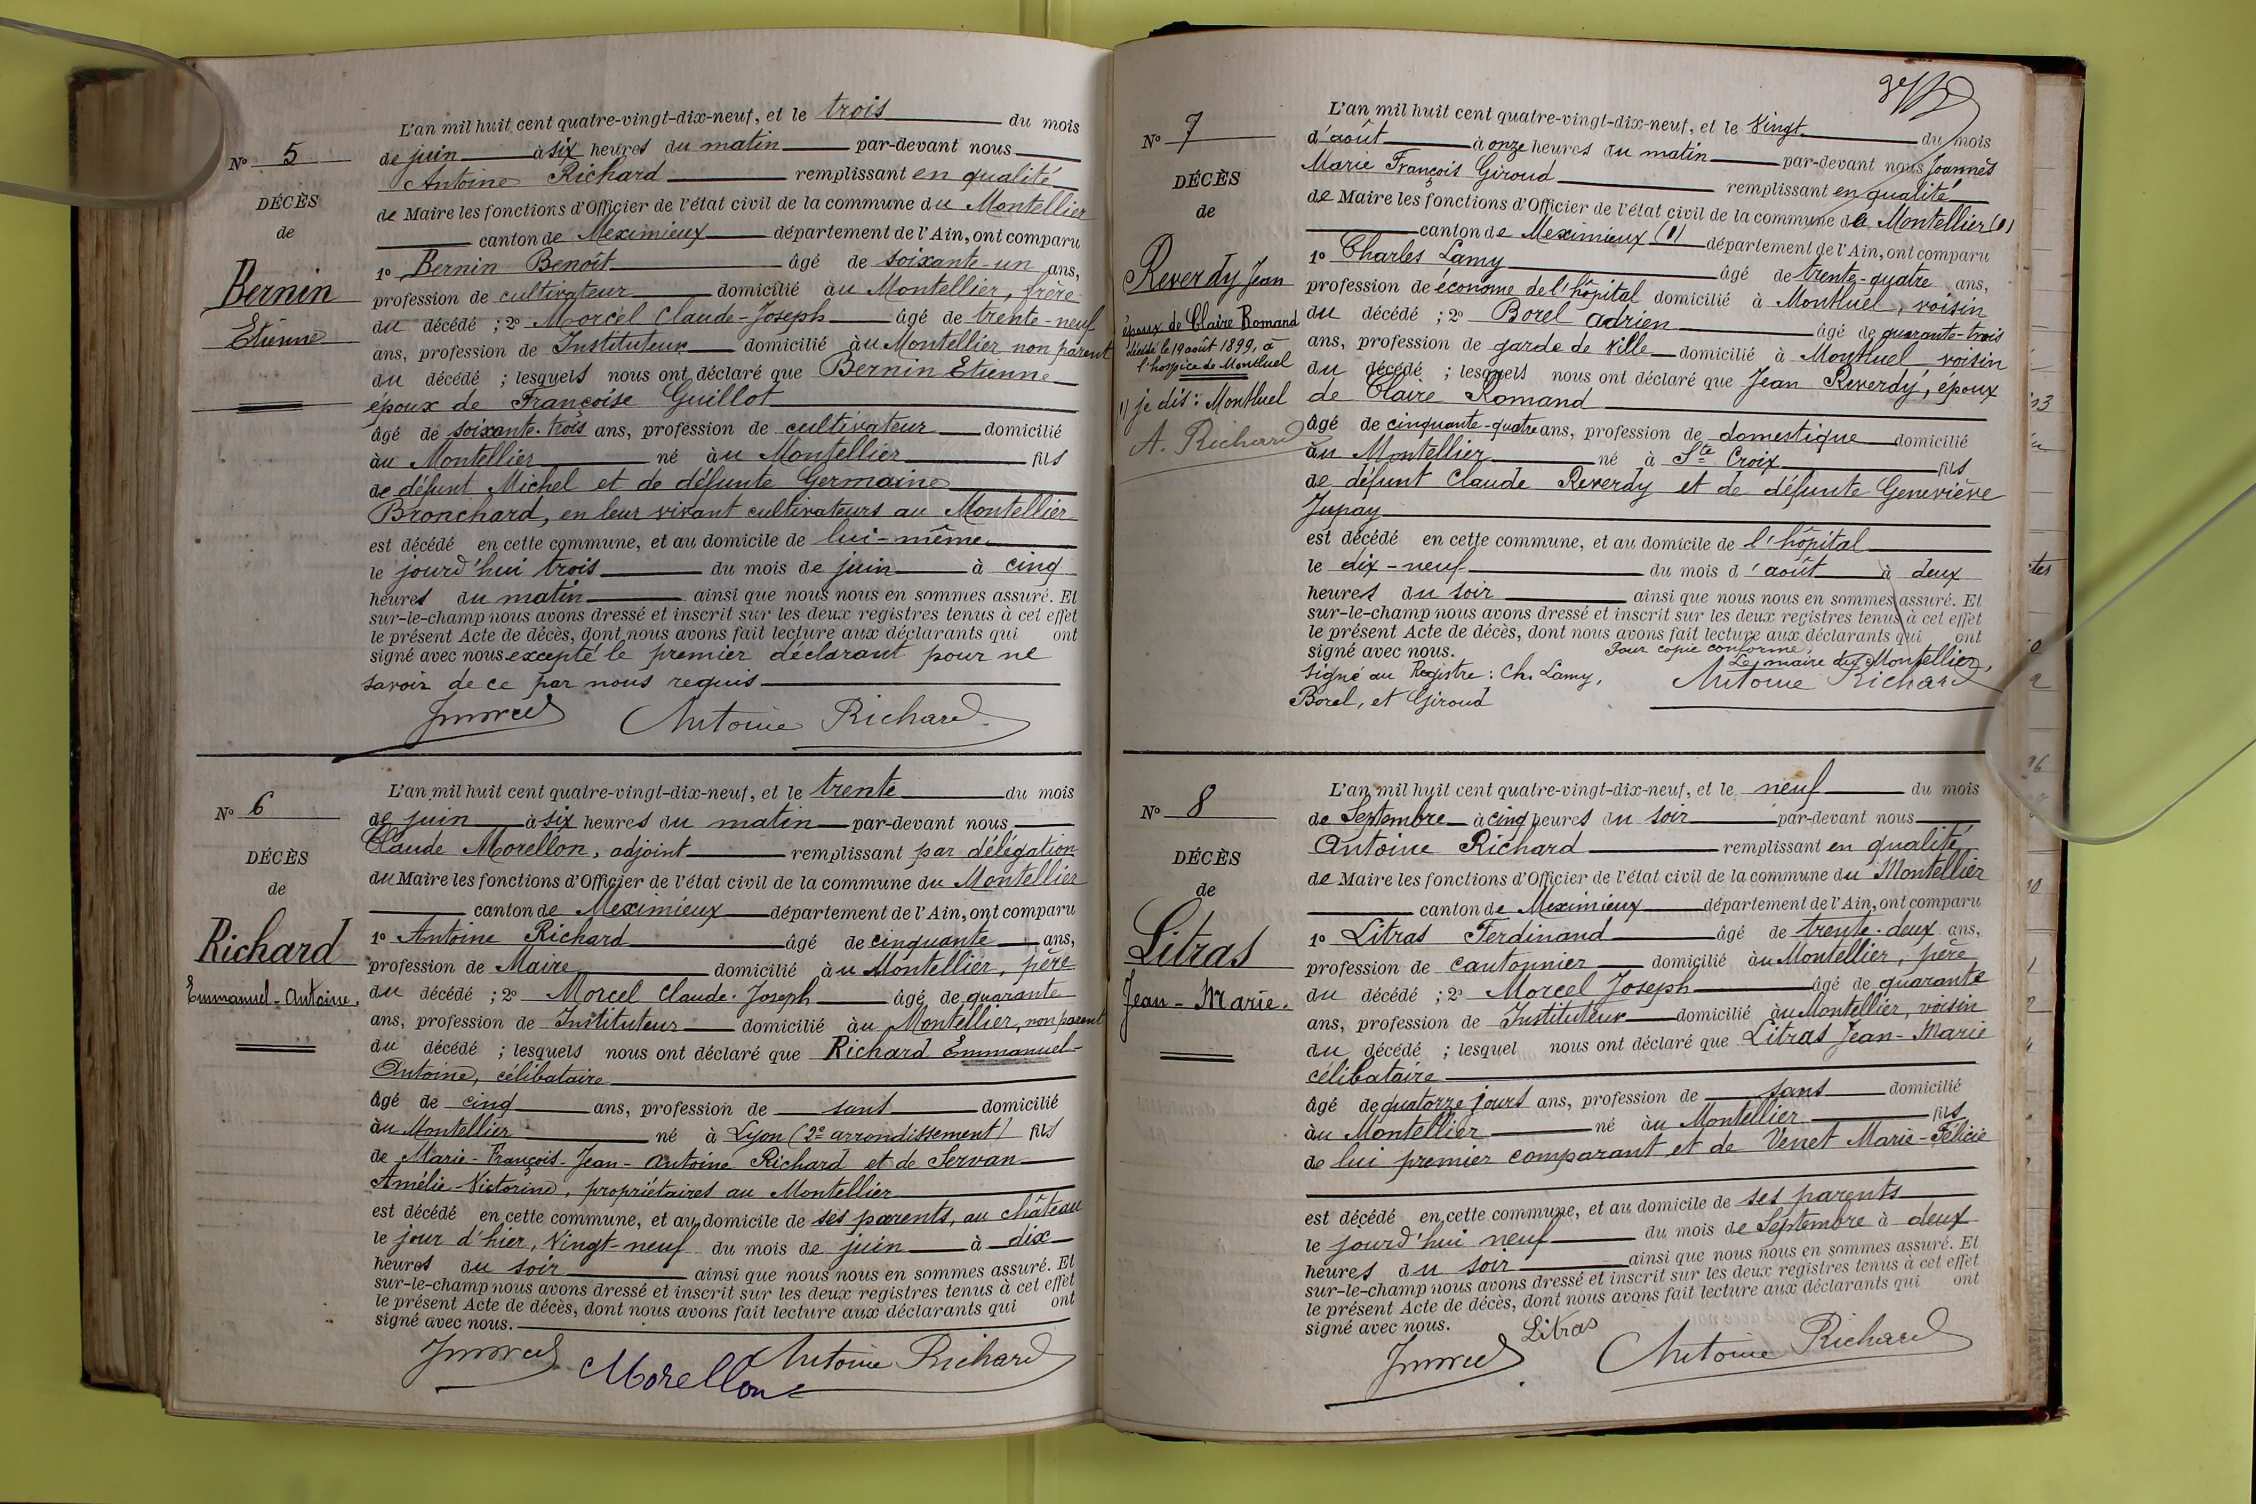 L'an mil huit cent quatre-vingt-dix-neuf, et le trois du mois
N° 5
de juin à six heures du matin par-devant nous
Antoine Richard remplissant en qualité
DÉCÈS
de Maire les fonctions d'Officier de l'état civil de la commune du Montellier
de
canton de Meximieux département de l'Ain, ont comparu
1° Bernin Benoît âgé de soixante-un ans,
Bernin
profession de cultivateur domicilié au Montellier, frère
du décédé ; 2° Morcel Claude-Joseph âgé de trente-neuf
Etienne
ans, profession de Instituteur domicilié au Montellier non parent
du décédé ; lesquels nous ont déclaré que Bernin Etienne
époux de Françoise Guillot
âgé de soixante-trois ans, profession de cultivateur domicilié
au Montellier né au Montellier fils
de défunt Michel et de défunte Germaine
Bronchard, en leur vivant cultivateurs au Montellier
est décédé en cette commune, et au domicile de lui-même
le jourd'hui trois du mois de juin à cinq
heures du matin ainsi que nous nous en sommes assuré. Et
sur-le-champ nous avons dressé et inscrit sur les deux registres tenus à cet effet
le présent Acte de décès, dont nous avons fait lecture aux déclarants qui ont
signé avec nous excepté le premier déclarant pour ne
savoir de ce par nous requis
Jmorcel Antoine Richard
L'an mil huit cent quatre-vingt-dix-neuf, et le trente du mois
N° 6
de juin à six heures du matin par-devant nous
Claude Morellon, adjoint remplissant par délégation
DÉCÈS
du Maire les fonctions d'Officier de l'état civil de la commune du Montellier
de
canton de Meximieux département de l'Ain, ont comparu
1° Antoine Richard âgé de cinquante ans,
Richard
profession de Maire domicilié au Montellier, père
Emmanuel-Antoine.
du décédé ; 2° Morcel Claude-Joseph âgé de quarante
ans, profession de Instituteur domicilié au Montellier, non parent
du décédé ; lesquels nous ont déclaré que Richard Emmanuel-
Antoine, célibataire
âgé de cinq ans, profession de sans domicilié
au Montellier né à Lyon (2e arrondissement) fils
de Marie-François-Jean-Antoine Richard et de Servan
Amélie-Victorine, propriétaires au Montellier
est décédé en cette commune, et au domicile de ses parents, au château
le jour d'hier, vingt-neuf du mois de juin à dix
heures du soir ainsi que nous nous en sommes assuré. Et
sur-le-champ nous avons dressé et inscrit sur les deux registres tenus à cet effet
le présent Acte de décès, dont nous avons fait lecture aux déclarants qui ont
signé avec nous.
Jmorcel Morellon Antoine Richard
L'an mil huit cent quatre-vingt-dix-neuf, et le vingt du mois
N° 7
d'août à onze heures du matin par-devant nous Joannès
Marie François Giroud remplissant en qualité
DÉCÈS
de Maire les fonctions d'Officier de l'état civil de la commune de Montellier (1)
de
canton de Meximieux (1) département de l'Ain, ont comparu
1° Charles Lamy âgé de trente-quatre ans,
Reverdy Jean
profession de économe de l'hôpital domicilié à Montluel, voisin
époux de Claire Romand
du décédé ; 2° Borel Adrien âgé de quarante-trois
décédé le 19 août 1899, à
ans, profession de garde de ville domicilié à Montluel voisin
l'hospice de Montluel
du décédé ; lesquels nous ont déclaré que Jean Reverdy, époux
1) je dis : Montluel
de Claire Romand
A. Richard
âgé de cinquante-quatre ans, profession de domestique domicilié
au Montellier né à Ste Croix fils
de défunt Claude Reverdy et de défunte Geneviève
Jupay
est décédé en cette commune, et au domicile de l'hôpital
le dix-neuf du mois d'août à deux
heures du soir ainsi que nous nous en sommes assuré. Et
sur-le-champ nous avons dressé et inscrit sur les deux registres tenus à cet effet
le présent Acte de décès, dont nous avons fait lecture aux déclarants qui ont
signé avec nous. Pour copie conforme,
Le maire du Montellier,
Signé au Registre : Ch. Lamy, Antoine Richard
Borel, et Giroud
L'an mil huit cent quatre-vingt-dix-neuf, et le neuf du mois
N° 8
de Septembre à cinq heures du soir par-devant nous
Antoine Richard remplissant en qualité
DÉCÈS
de Maire les fonctions d'Officier de l'état civil de la commune du Montellier
de
canton de Meximieux département de l'Ain, ont comparu
1° Litras Ferdinand âgé de trente-deux ans,
Litras
profession de cantonnier domicilié au Montellier, père
Jean-Marie.
du décédé ; 2° Morcel Joseph âgé de quarante
ans, profession de Instituteur domicilié au Montellier, voisin
du décédé ; lesquel nous ont déclaré que Litras Jean-Marie
célibataire
âgé de quatorze jours ans, profession de sans domicilié
au Montellier né au Montellier fils
de lui premier comparant et de Venet Marie-Félicie
est décédé en cette commune, et au domicile de ses parents
le jourd'hui neuf du mois de Septembre à deux
heures du soir ainsi que nous nous en sommes assuré. Et
sur-le-champ nous avons dressé et inscrit sur les deux registres tenus à cet effet
le présent Acte de décès, dont nous avons fait lecture aux déclarants qui ont
signé avec nous. Litras
Jmorcel Antoine Richard